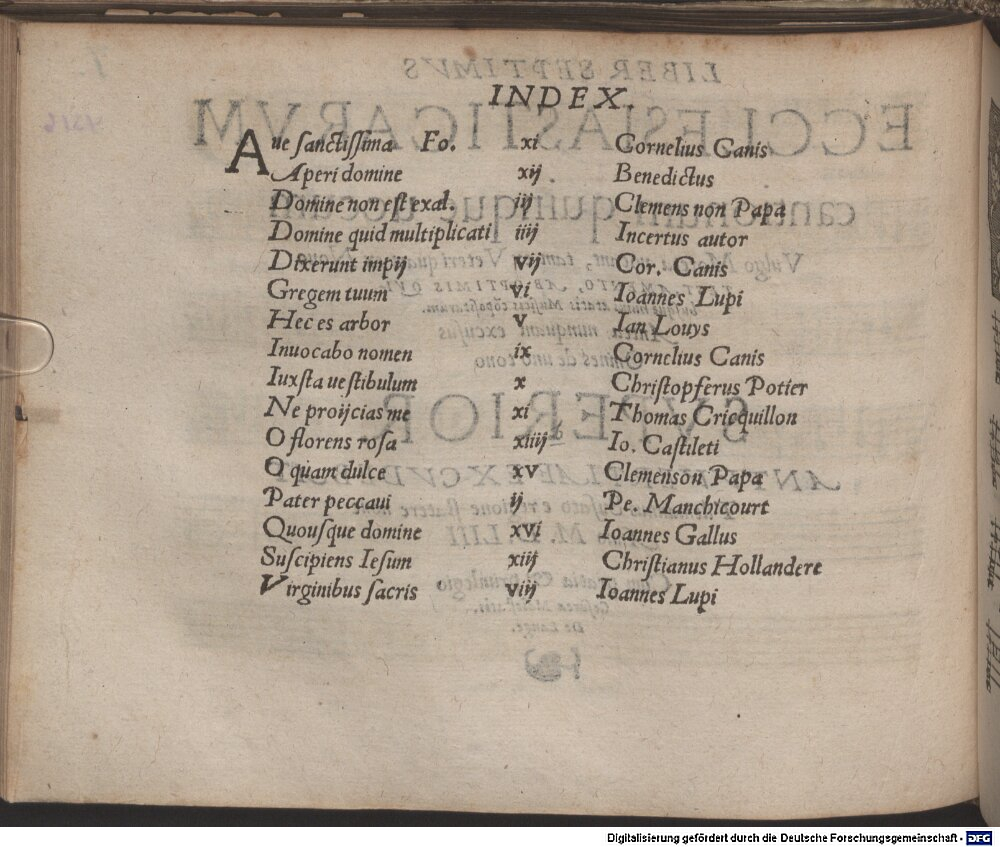 INDEX.
Aue sanctissima Fo. xi Cornelius Canis
Aperi domine xij Benedictus
Domine non est exal. iij Clemens non Papa
Domine quid multiplicati iiij Incertus autor
Dixerunt impij vij Cor. Canis
Gregem tuum vi Ioannes Lupi
Hec es arbor v Ian Louys
Inuocabo nomen ix Cornelius Canis
Iuxsta uestibulum x Christopferus Potier
Ne proijcias me xi Thomas Cricquillon
O florens rosa xiiij Io. Castileti
O quam dulce xv Clemenson Papa
Pater peccaui ij Pe. Manchicourt
Quousque domine xvi Ioannes Gallus
Suscipiens Iesum xiij Christianus Hollandere
Virginibus sacris viij Ioannes Lupi
Digitalisierung gefördert durch die Deutsche Forschungsgemeinschaft - DFG